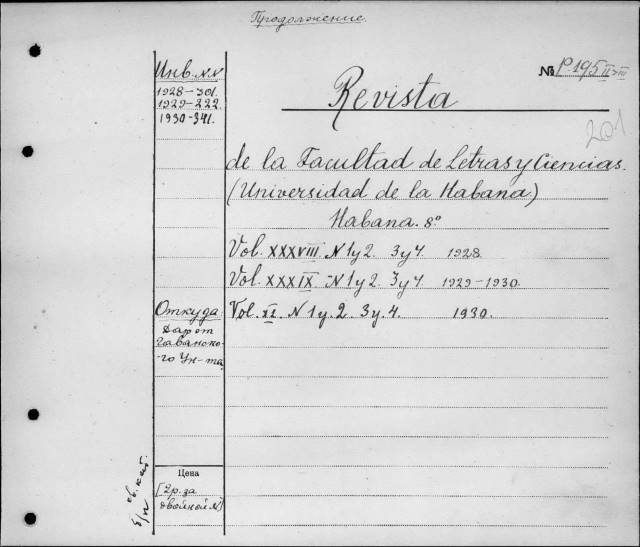 Продолжение.
Инв. N.N
1928-301.
1929-222.
1930-241.
№ P 195 II-III
Revista
201
de la Facultad de Letras y Ciencias.
(Universidad de la Habana)
Habana. 8º
Vol. XXXVIII. N 1 y 2. 3 y 4. 1928.
Vol. XXXIX. N 1 y 2. 3 y 4. 1929-1930.
Vol. XL. N 1 y. 2. 3 y. 4. 1930.
Откуда
Дар от
Гаванско-
-го Ун-та
Цена
[2р. за
двойной N]